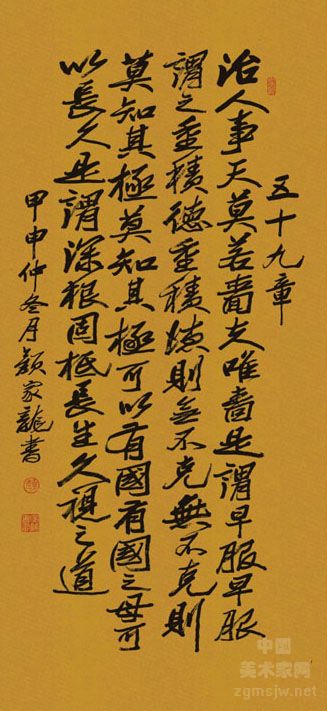 五十九章
治人事天莫若嗇夫唯嗇是謂早服早服
謂之重積德重積德則無不克無不克則
莫知其極莫知其極可以有國有國之母可
以長久是謂深根固柢長生久視之道
甲申仲冬月顏家龍書
中国
美术家网
zgmsjw.net